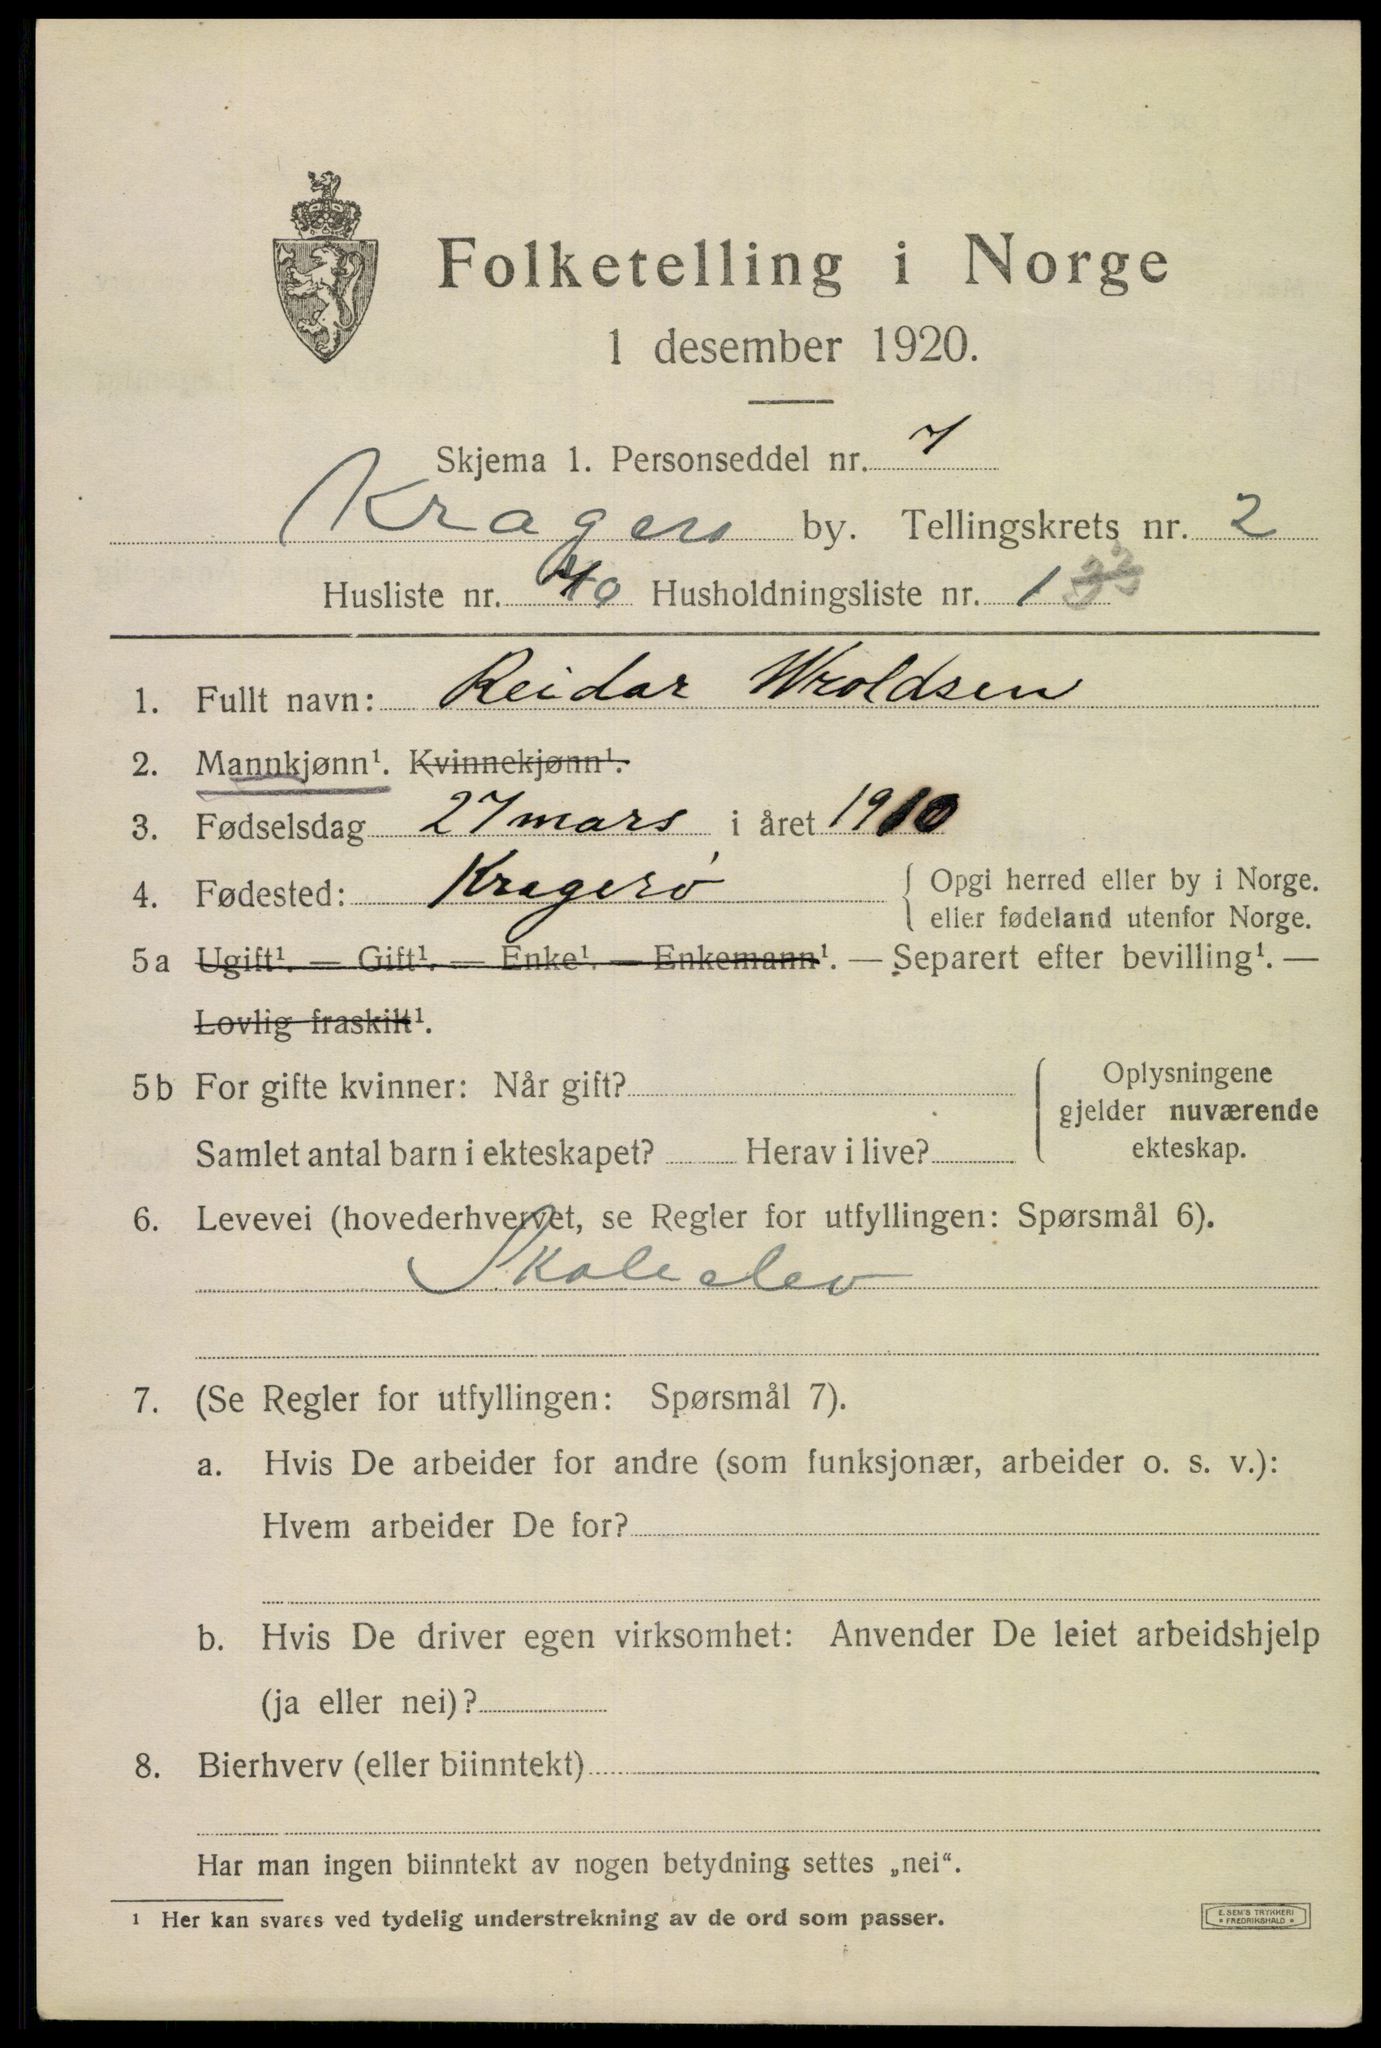 Folketelling i Norge
1 desember 1920.
Skjema 1. Personseddel nr. 7
Kragerø by. Tellingskrets nr. 2
Husliste nr. 40 Husholdningsliste nr. 1 33
1. Fullt navn: Reidar Wroldsen
2. Mannkjønn¹. Kvinnekjønn¹.
3. Fødselsdag 27 mars i året 1910
4. Fødested: Kragerø { Opgi herred eller by i Norge.
eller fødeland utenfor Norge.
5a Ugift¹. — Gift¹. — Enke¹. — Enkemann¹. — Separert efter bevilling¹. —
Lovlig fraskilt¹.
5b For gifte kvinner: Når gift? Oplysningene
gjelder nuværende
Samlet antal barn i ekteskapet? Herav i live? ekteskap.
6. Levevei (hovederhvervet, se Regler for utfyllingen: Spørsmål 6).
Skoleelev
7. (Se Regler for utfyllingen: Spørsmål 7).
a. Hvis De arbeider for andre (som funksjonær, arbeider o. s. v.):
Hvem arbeider De for?
b. Hvis De driver egen virksomhet: Anvender De leiet arbeidshjelp
(ja eller nei)?
8. Bierhverv (eller biinntekt)
Har man ingen biinntekt av nogen betydning settes „nei“.
¹ Her kan svares ved tydelig understrekning av de ord som passer.
E. SEM'S TRYKKERI
FREDRIKSHALD